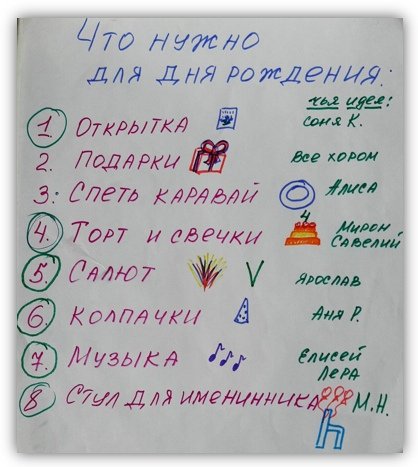 Что нужно
для дня рождения:
чья идея:
1. Открытка Соня К.
2. Подарки Все хором
3. Спеть каравай Алиса
4. Торт и свечки 4 Мирон
Савелий
5. Салют V Ярослав
6. Колпачки Аня Р.
7. Музыка Елисей
Лера
8 Стул для именинника М.Н.